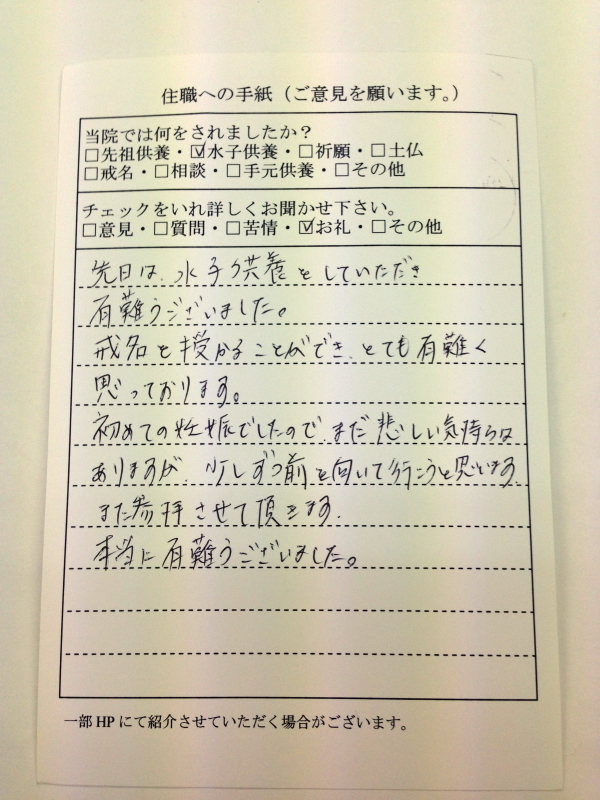 住職への手紙（ご意見を願います。）
当院では何をされましたか？
□先祖供養・☑水子供養・□祈願・□土仏
□戒名・□相談・□手元供養・□その他
チェックをいれ詳しくお聞かせ下さい。
□意見・□質問・□苦情・☑お礼・□その他
先日は、水子供養をしていただき
有難うございました。
戒名を授かることができ、とても有難く
思っております。
初めての妊娠でしたので、まだ悲しい気持ちは
ありますが、少しずつ前を向いて行こうと思います。
また参拝させて頂きます。
本当に有難うございました。
一部HPにて紹介させていただく場合がございます。